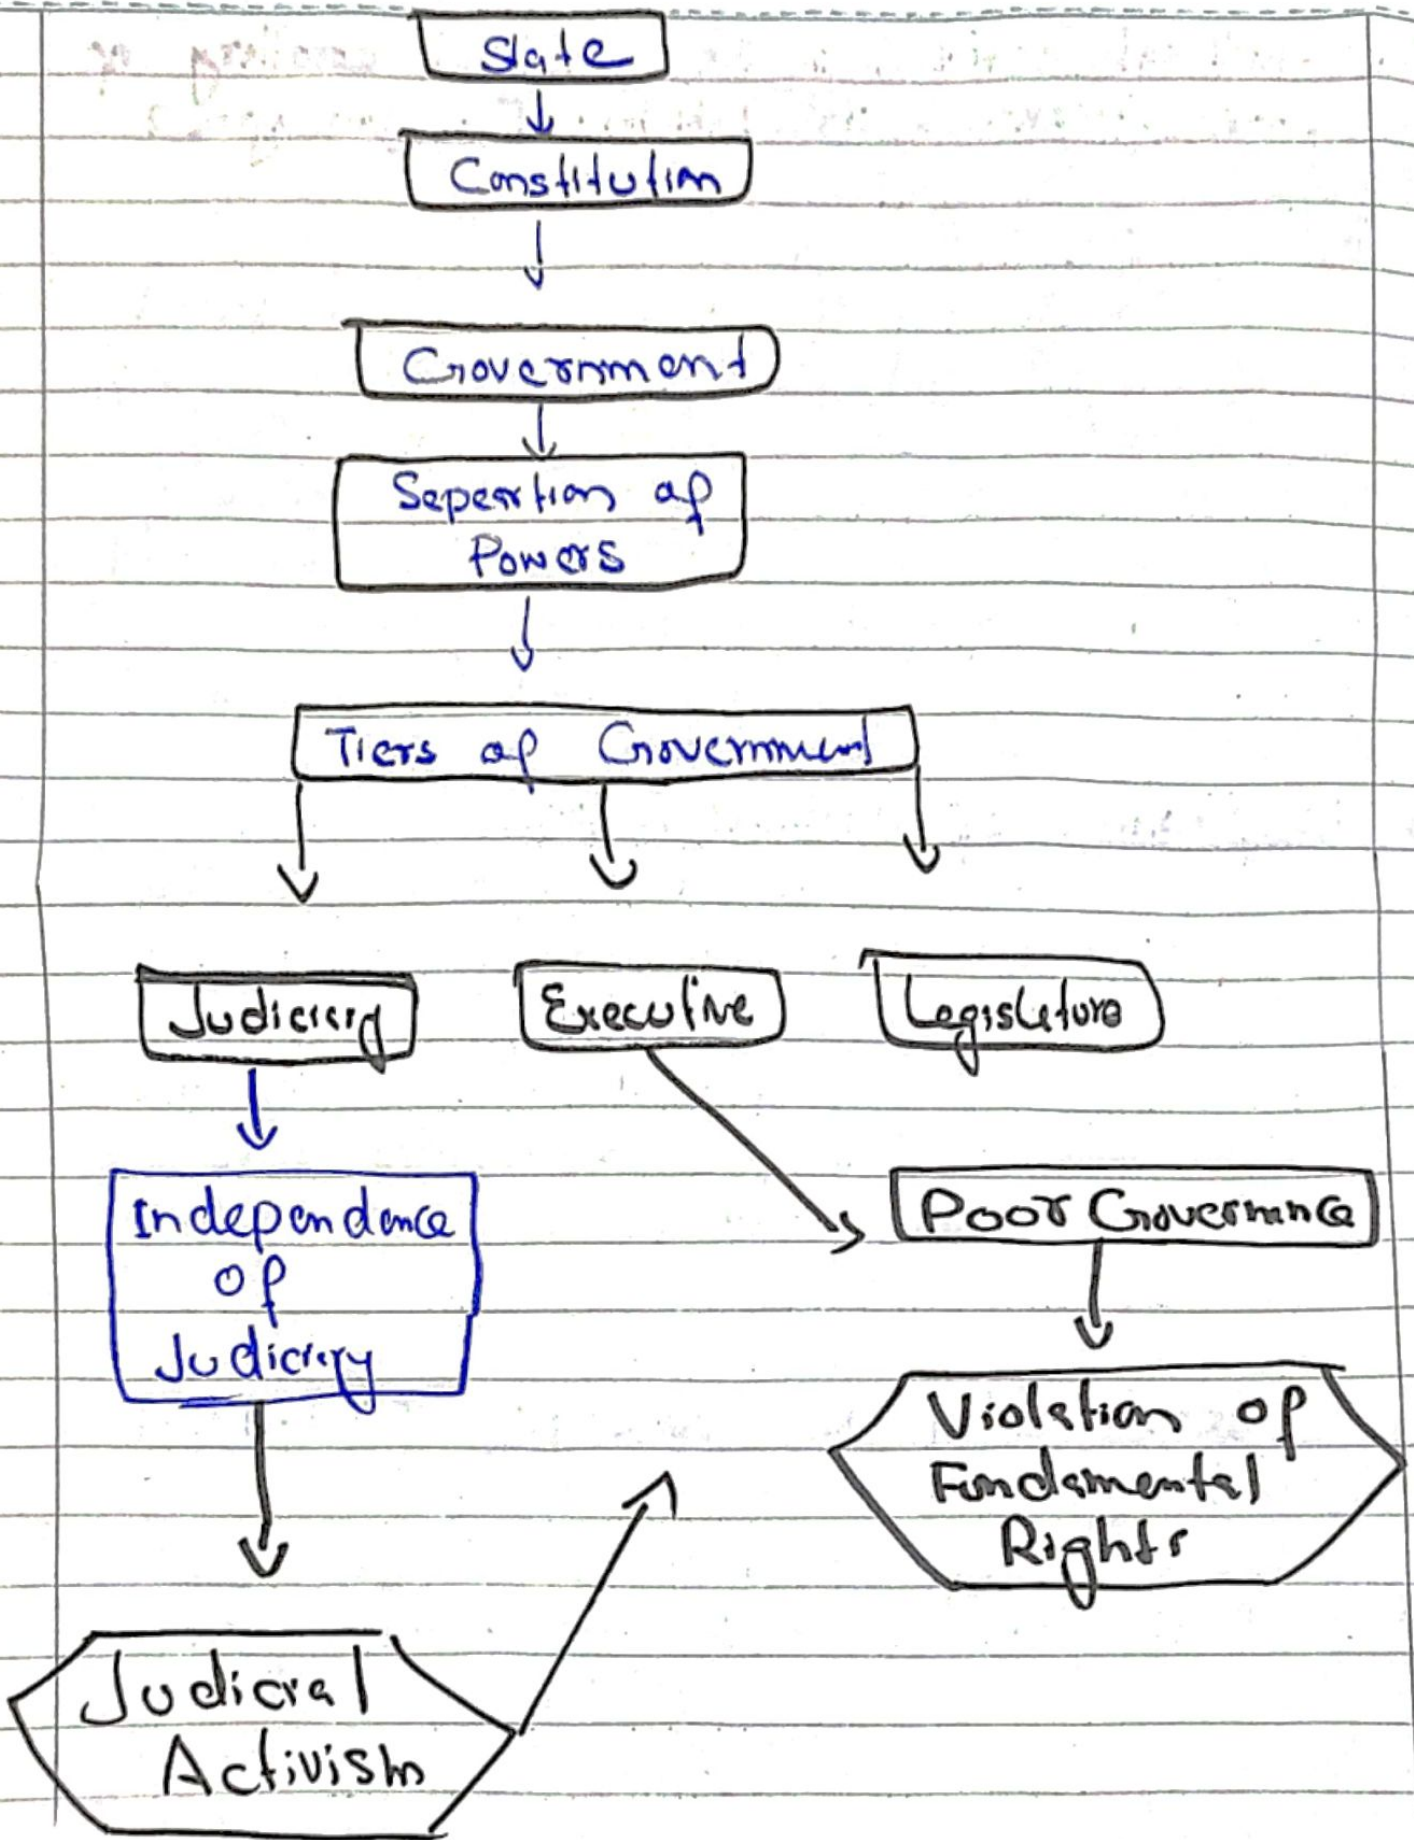 State
Constitution
Government
Seperation of
Powers
Tiers of Government
Judiciary
Executive
Legislature
Independence
of
Judiciary
Poor Governance
Violation of
Fundamental
Rights
Judicial
Activism